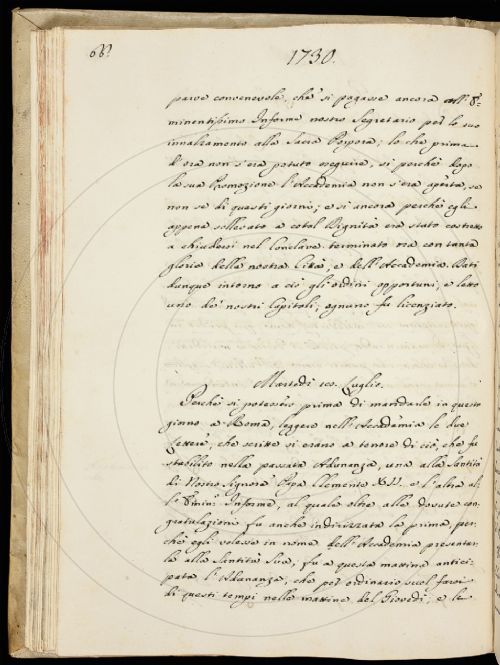 68.
1730.
parve convenevole, che si pagasse ancora all' E-
minentissimo Informe nostro Segretario per lo suo
innalzamento alla Sacra Porpora; lo che prima
d'ora non s'era potuto eseguire, si perchè dopo
la sua Promozione l'Accademia non s'era aperta, se
non se di questi giorni; e si ancora perchè egli
appena sollevato a cotal Dignità era stato costretto
a chiudersi nel Conclave terminato ora con tanta
gloria della nostra Città, e dell'Accademia. Dati
dunque intorno a ciò gli ordini opportuni, e letto
uno de' nostri Capitoli, ognuno fu licenziato.
Martedì 10. Luglio.
Perchè si potessero prima di mandarle in questo
giorno a Roma, leggere nell'Accademia le due
Lettere, che scritte si erano a tenore di ciò, che fu
stabilito nella passata Adunanza, una alla Santità
di Nostro Signore Papa Clemente XII. e l'altra al-
l'Emin. Informe, al quale oltre alle dovute con-
gratulazioni fu anche indirizzata la prima, per-
chè egli volesse in nome dell'Accademia presentar-
la alla Santità Sua, fu a questa mattina antici-
pata l'Adunanza, che per ordinario suol farsi
di questi tempi nelle mattine del Giovedì; e le